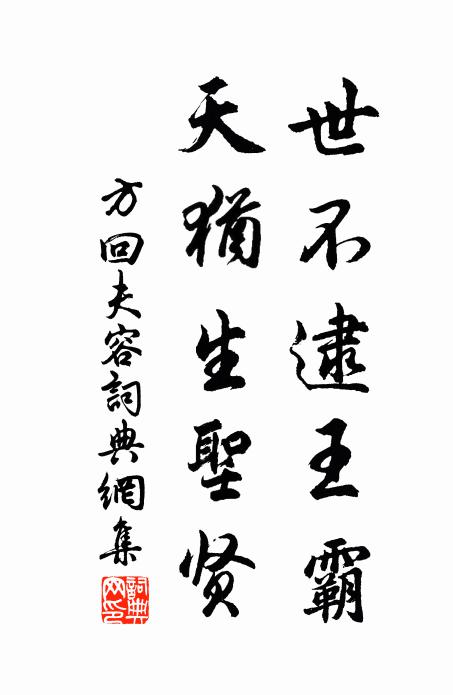 世不逮王霸
天猶生聖贤
方回夫容詞典網集
詞典網印